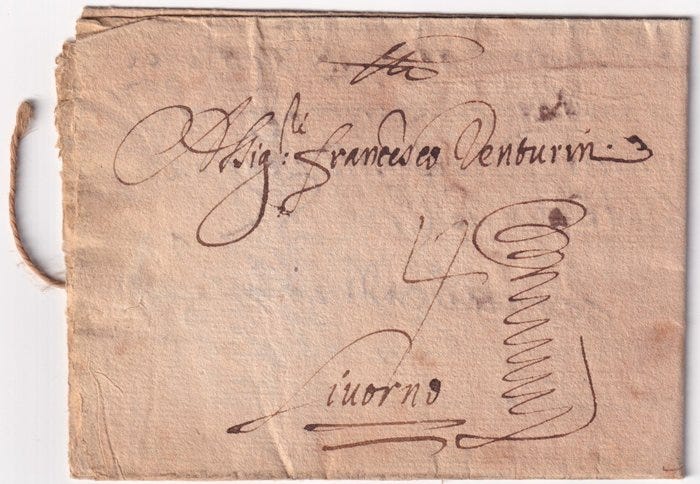 Al Sig:re francesco Venturin
4
Livorno